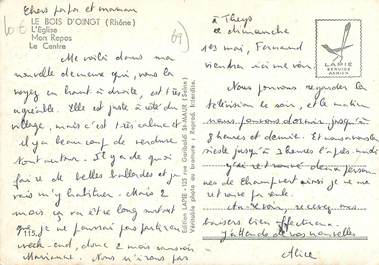 Chers papa et maman
LE BOIS D'OINGT (Rhône)
L'Eglise
Mon Repos
Le Centre
Me voilà dans ma
nouvelle demeure qui, vous la
voyez en haut à droite, est très
agréable. Elle est juste à côté du
village, mais c'est très calme et
il y a beaucoup de verdure
tout autour. Il y a de quoi
faire de belles ballades et je
vais m'y habituer. Mais 2
mois ça va être long surtout
que je ne pourrai pas partir en
week-end, donc 2 mois sans voir
Marianne. Nous n'irons pas
115
Edition LAPIE - 125 rue Garibaldi St-MAUR (Seine)
Véritable photo au bromure - Reprod. Interdite.
à Theys
ce dimanche
1er mai, Fernand
viendra ici me voir.
Nous pouvons regarder la
télévision le soir, et le matin
nous pouvons dormir jusqu'à
8 heures et demie. Et nous avons
sieste jusqu'à 3 heures l'après midi
J'ai retrouvé deux person-
nes de Champvert ainsi je ne me
retrouve pas seule.
Au revoir, recevez mes
baisers bien affectueux.
J'attends de vos nouvelles
Alice
LAPIE
SERVICE
AERIEN